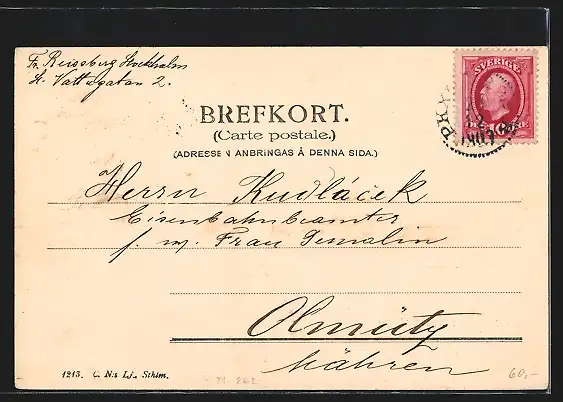 Fr. Reissberg Stockholm
St. Vattugatan 2.
SVERIGE
BREFKORT.
(Carte postale.)
(ADRESSEN ANBRINGAS Å DENNA SIDA.)
Herrn Kudláček
Eisenbahnbeamter
f m. Frau Gemalin
Olmütz
Mähren
1213. C. N:s Lj., Sthlm.
60,-